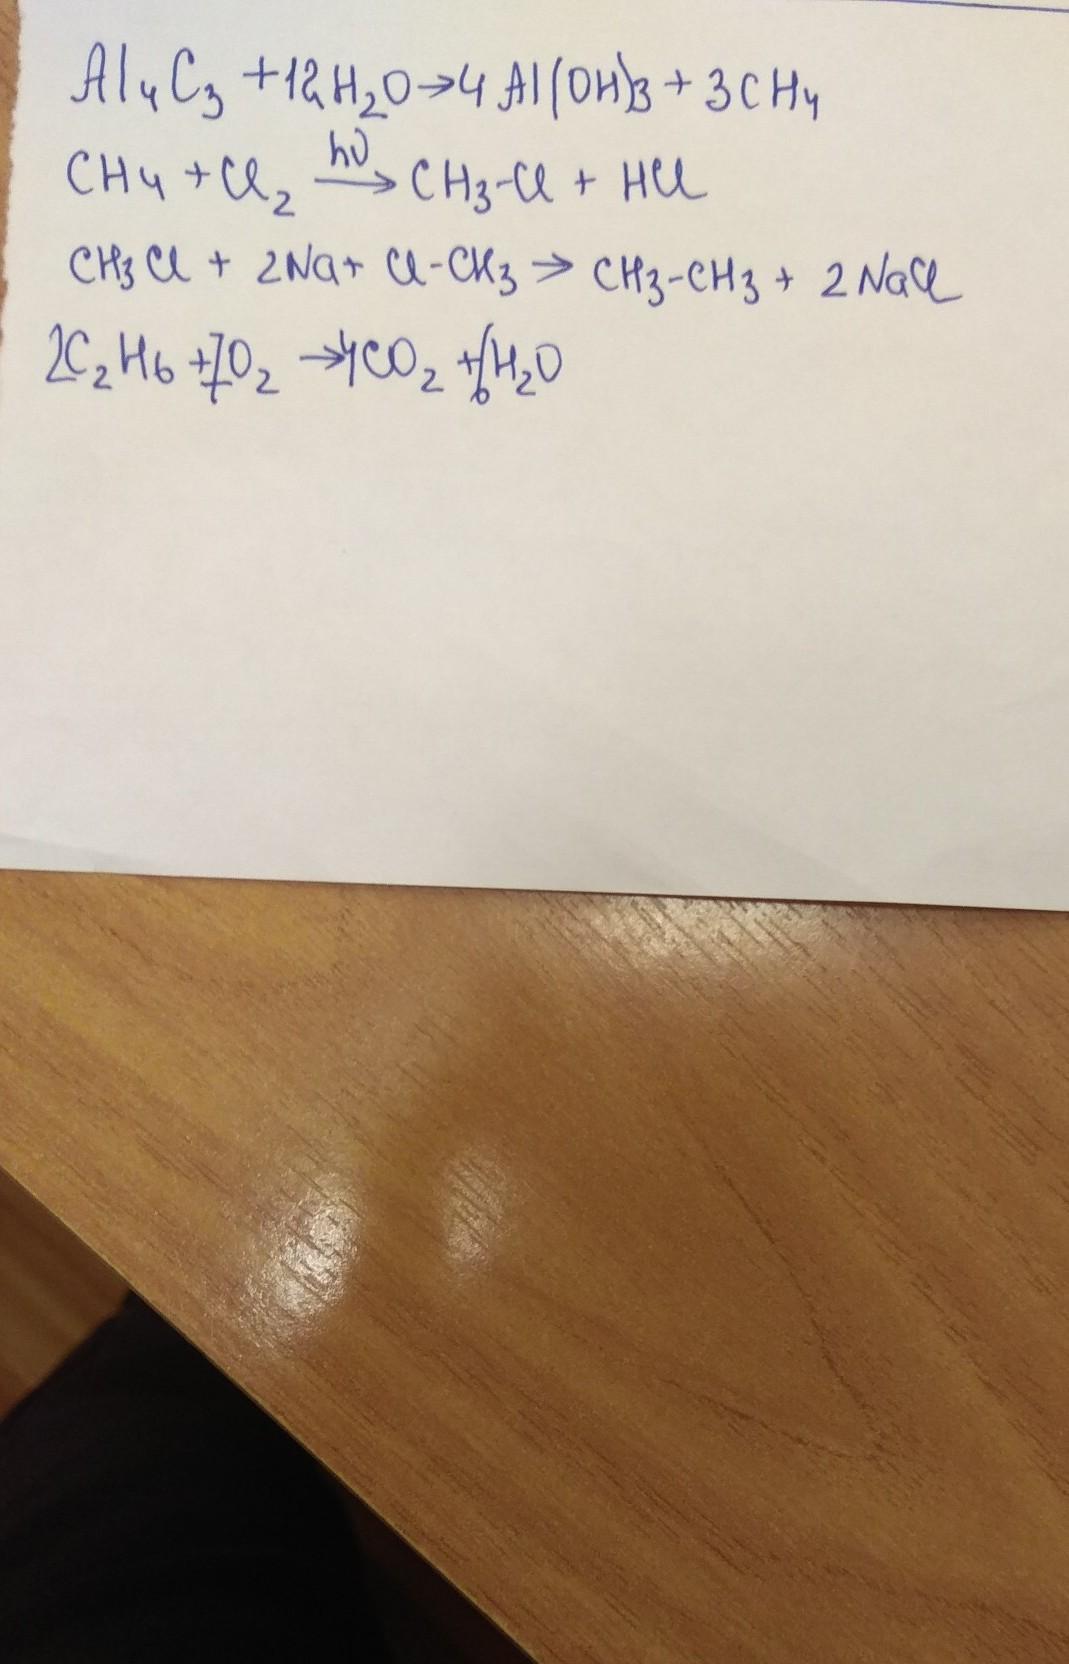 Al₄C₃ + 12H₂O → 4Al(OH)3 + 3CH₄
CH₄ + Cl₂ hν → CH₃-Cl + HCl
CH₃Cl + 2Na + Cl-CH₃ → CH₃-CH₃ + 2NaCl
2C₂H₆ + 7O₂ → 4CO₂ + 6H₂O